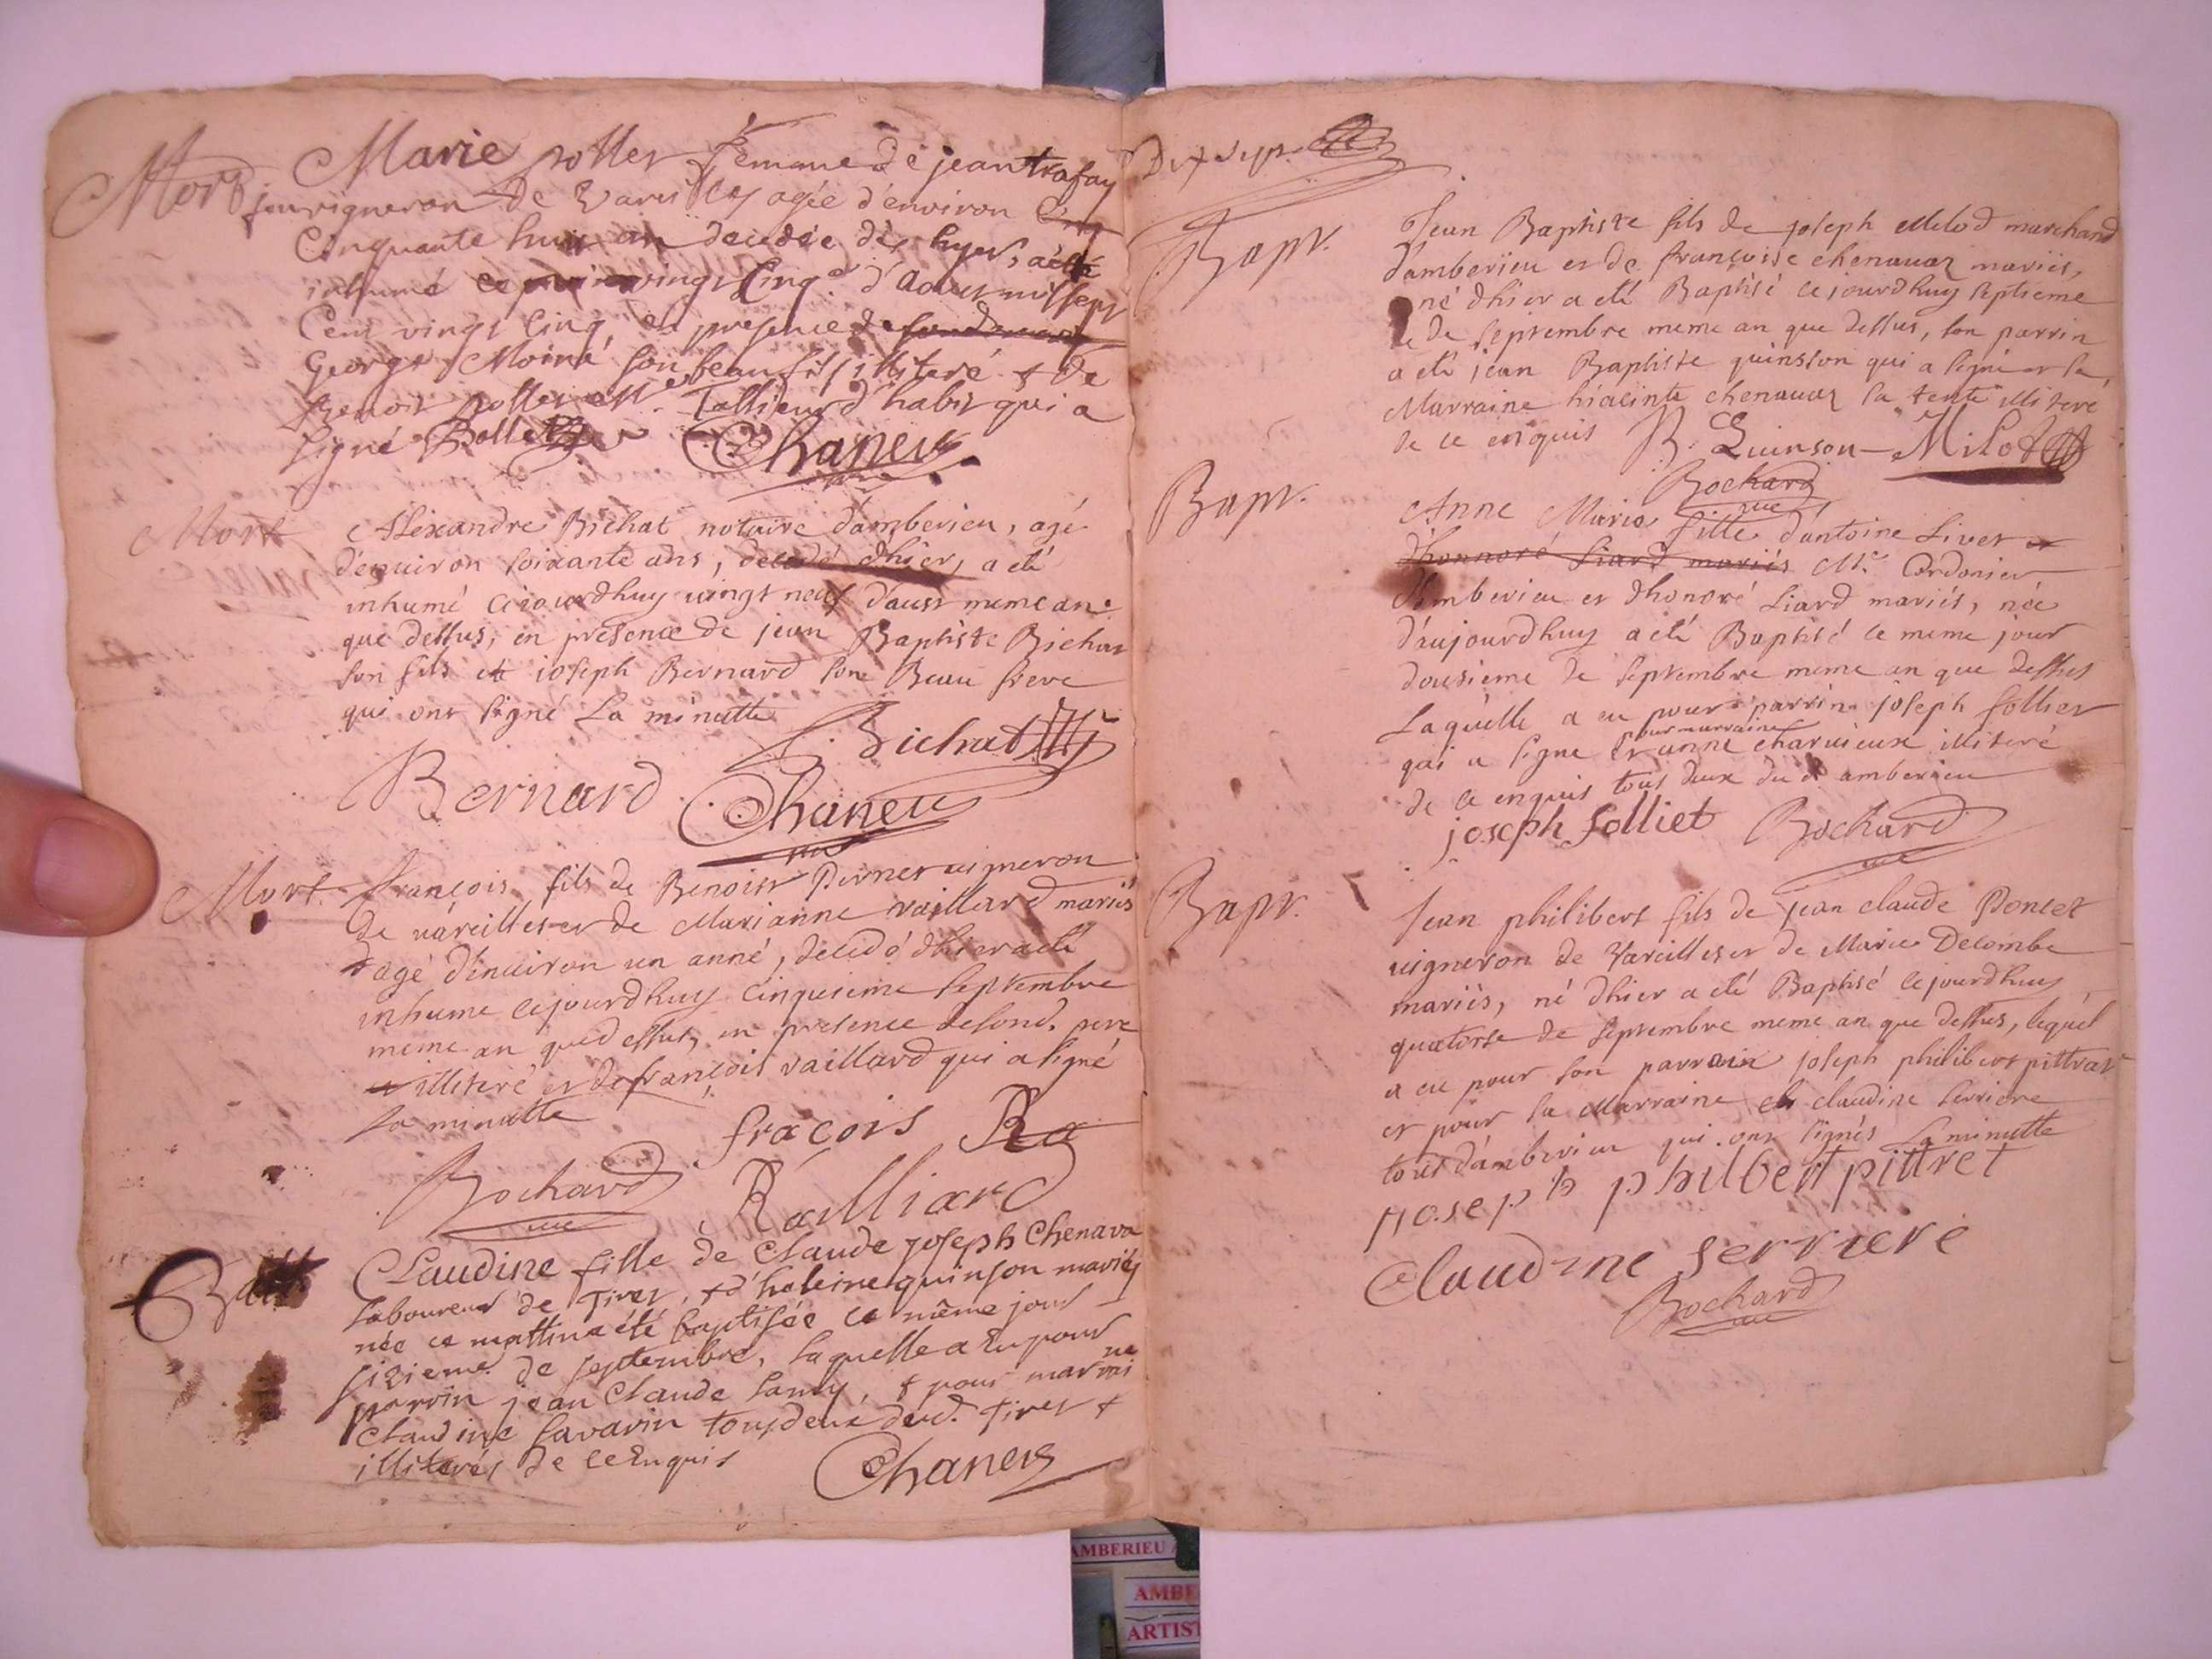 Mort
Marie sollet femme de jean trafay
feu vigneron de Vareilles agée d'environ
Cinquante huit an decedée dès hyer, a été
inhumé ce vingt Cinq.e d'aoust mil sept
Cent vingt Cinq en presence de
George Moiné son beau fils illiteré & de
Benoit sollet Tallieur d'habit qui a
signé Bollet Chaneu
Mort
Alexandre Bichat notaire d'amberieu, agé
d'enuiron soixante ans, decedé d'hier, a eté
inhumé cejourdhuy uingt neuf d'aust meme an
que dessus, en presence de jean Baptiste Bichat
son fils et ioseph Bernard son Beau frere
qui ont signé La minutte
Bichat
Bernard Chaneu
Mort
françois fils de Benoist Pernet uigneron
de uareilles et de Marianne vaillard mariés
agé d'enuiron un anné, decedé d'hier a eté
inhume cejourdhuy cinquieme septembre
meme an que dessus, en presence desond. pere
illiteré et de françois vaillard qui a signé
la minutte
fracois Ra
Bochard Railliard
Batt
Claudine fille de Claude joseph Chenava
laboureur de Tiret, & d'heleine quinson mariés
née ce mattin a été baptisée le même jour
sizieme de septembre, laquelle a Eu pour
parrin jean Claude Lamy, & pour marraine
Claudine savarin tous deux dud. Tiret &
illiterés de ce Enquis Chaneu
Dix sept
Bapt.
Jean Baptiste fils de joseph Milod marchand
d'amberieu et de françoise chenauaz mariés,
né d'hier a eté Baptisé cejourdhuy septieme
de septembre meme an que dessus, son parrin
a eté jean Baptiste quinsson qui a signé et la
Marraine hiacinte chenauaz sa tente illiteré
de ce enquis B. Quinson Milod
Bochard
Bapt.
Anne Marie fille d'antoine Livet et
d'honnoré Liard mariés M.e Cordonier
d'Amberieu et d'honoré Liard mariés, née
d'aujourdhuy a eté Baptisé le meme jour
dousieme de septembre meme an que dessus
Laquelle a eu pour parrin joseph follier
pour marraine
qui a signe et anne charuieux illiteré
de ce enquis tous deux du d amberieu
joseph folliet Bochard
Bapt.
Jean philibert fils de jean claude Ponset
uigneron de Vareilles et de Marie Decombe
mariés, né d'hier a eté Baptisé cejourdhuy
quatorse de septembre meme an que dessus, lequel
a eu pour son parrain joseph philibert pittrat
et pour sa Marraine claudine serriere
tous d'amberieu qui ont signés La minutte
joseph philbert pittret
Claudine serriere
Bochard
AMBERIEU
AMBE
ARTIST